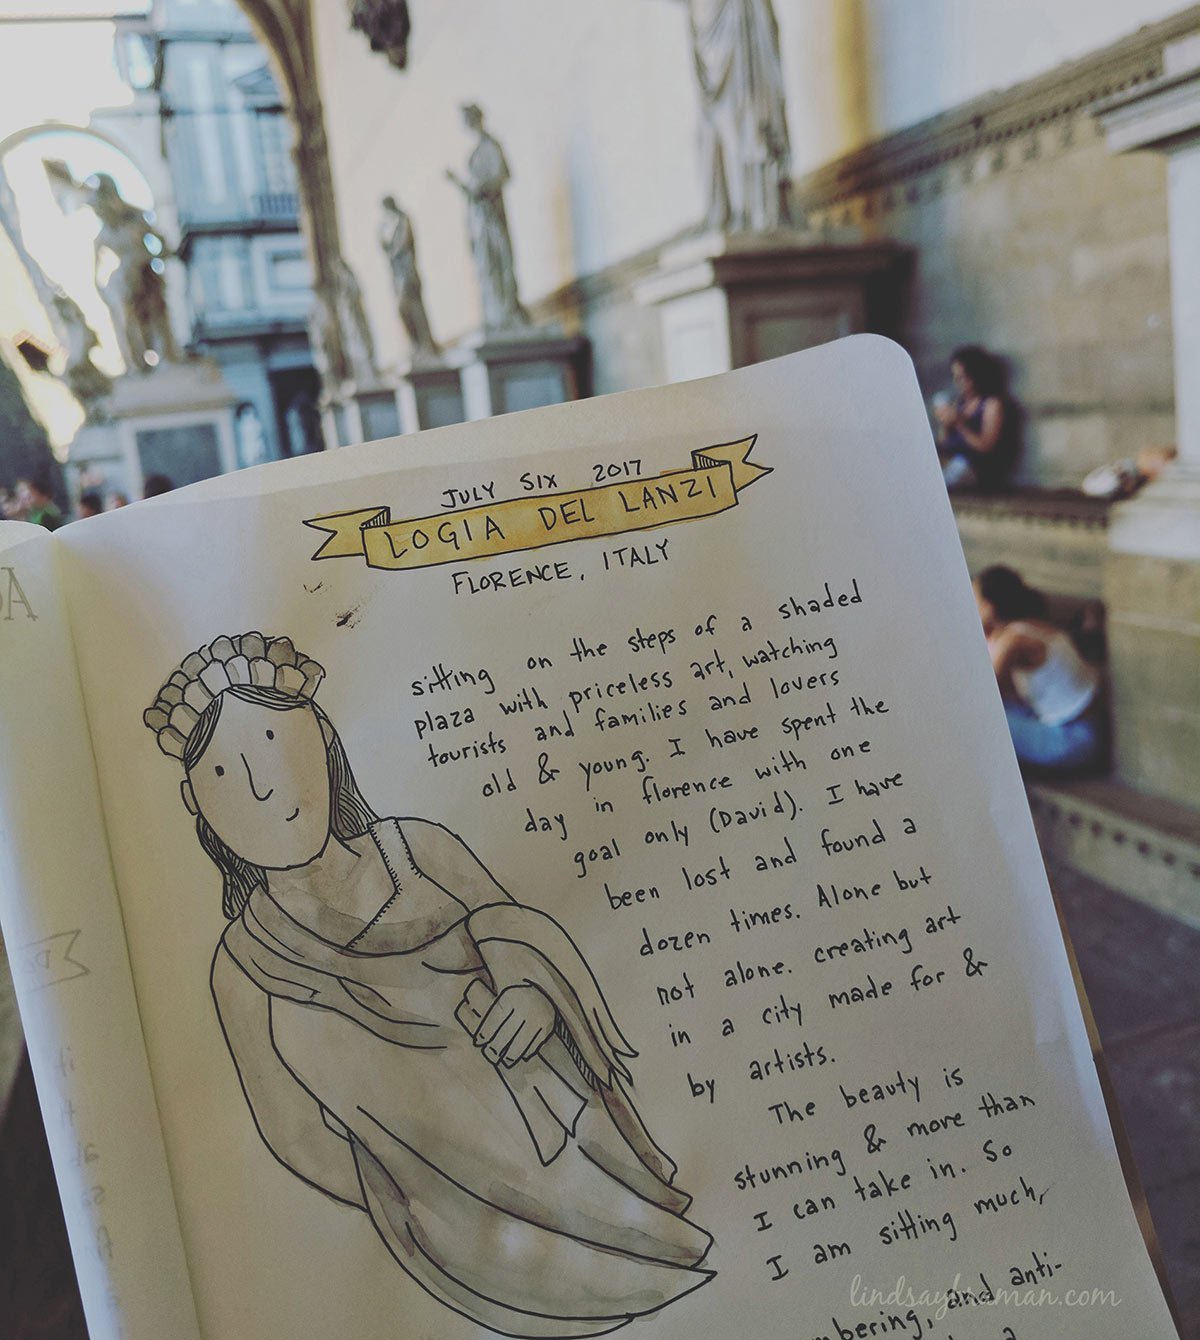 JULY SIX 2017
LOGIA DEL LANZI
FLORENCE, ITALY
sitting on the steps of a shaded
plaza with priceless art, watching
tourists and families and lovers
old & young. I have spent the
day in florence with one
goal only (David). I have
been lost and found a
dozen times. Alone but
not alone. creating art
in a city made for &
by artists.
The beauty is
stunning & more than
I can take in. So
I am sitting much,
mbering, and anti-
a
lindsaybraman.com